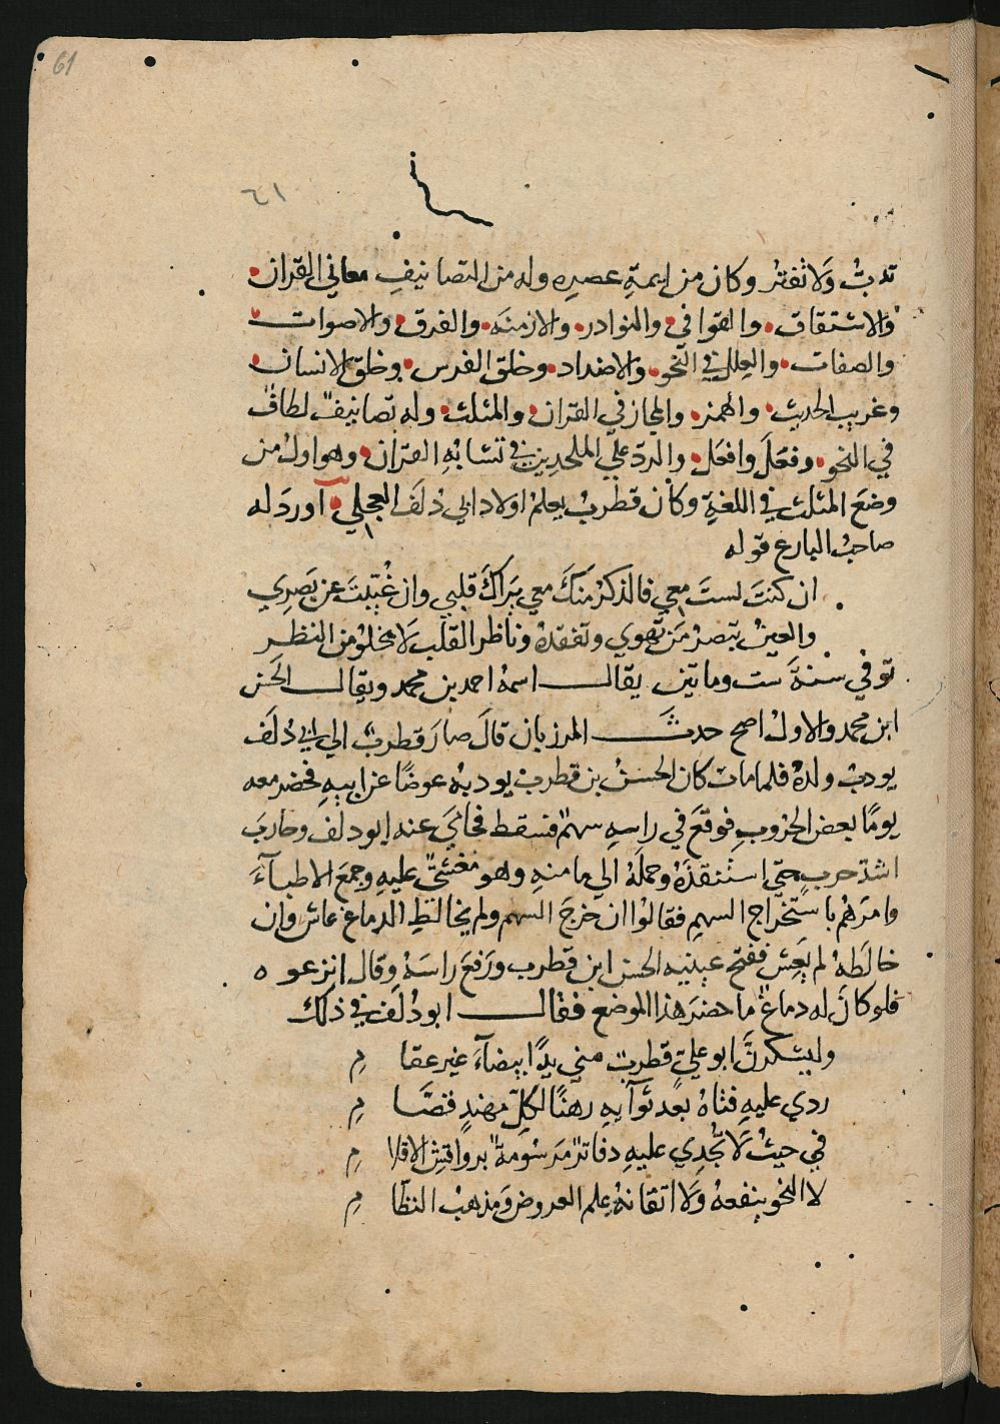 61
٦١
تدبّ ولا تفتر وكان من ايمة عصره وله من التصانيف معاني القران
والاشتقاق والقوافي والنوادر والازمنه والفرق والاصوات
والصفات والعلل في النحو والاضداد وخلق الفرس وخلق الانسان
وغريب الحديث والهمز والمجاز في القران والمثلث وله تصانيف لطاف
في النحو وفعل وافعل والرد علي الملحدين في تشابه القران وهو اول من
وضع المثلث في اللغة وكان قطرب يعلم اولاد ابي دلف العجلي اورد له
صاحب البارع قوله
ان كنت لست معي فالذكر منك معي يراك قلبي وان غيبت عن بصري
والعين تبصر من تهوي وتفقده وناظر القلب لا يخلو من النظر
توفي سنة ست وماتين يقال اسمه احمد بن محمد ويقال الحسن
ابن محمد والاول اصح حدث المرزبان قال صار قطرب الي ابي دلف
يودب ولده فلما مات كان الحسن بن قطرب يودبه عوضا عن ابيه فحضر معه
يوما بعض الحروب فوقع في راسه سهم فسقط فحامي عنه ابو دلف وحارب
اشد حرب حتي استنقذه وحمله الي مامنه وهو مغشيّ عليه وجمع الاطباء
وامرهم باستخراج السهم فقالوا ان خرج السهم ولم يخالط الدماغ عاش وان
خالطه لم يعش ففتح عينيه الحسن ابن قطرب ورفع راسه وقال انزعوه
فلو كان له دماغ ما حضر هذا الموضع فقال ابو دلف في ذلك
وليشكرن ابو علي قطرب مني يدا بيضاء غير عقا م
ردي عليه فتاه بعد ثوآيه رهنا لكل مهند قصا م
في حيث لا تجدي عليه دفاتر مرسومة برواقش الاقلا م
لا النحو ينفعه ولا اتقانه علم العروض ومذهب النظا م